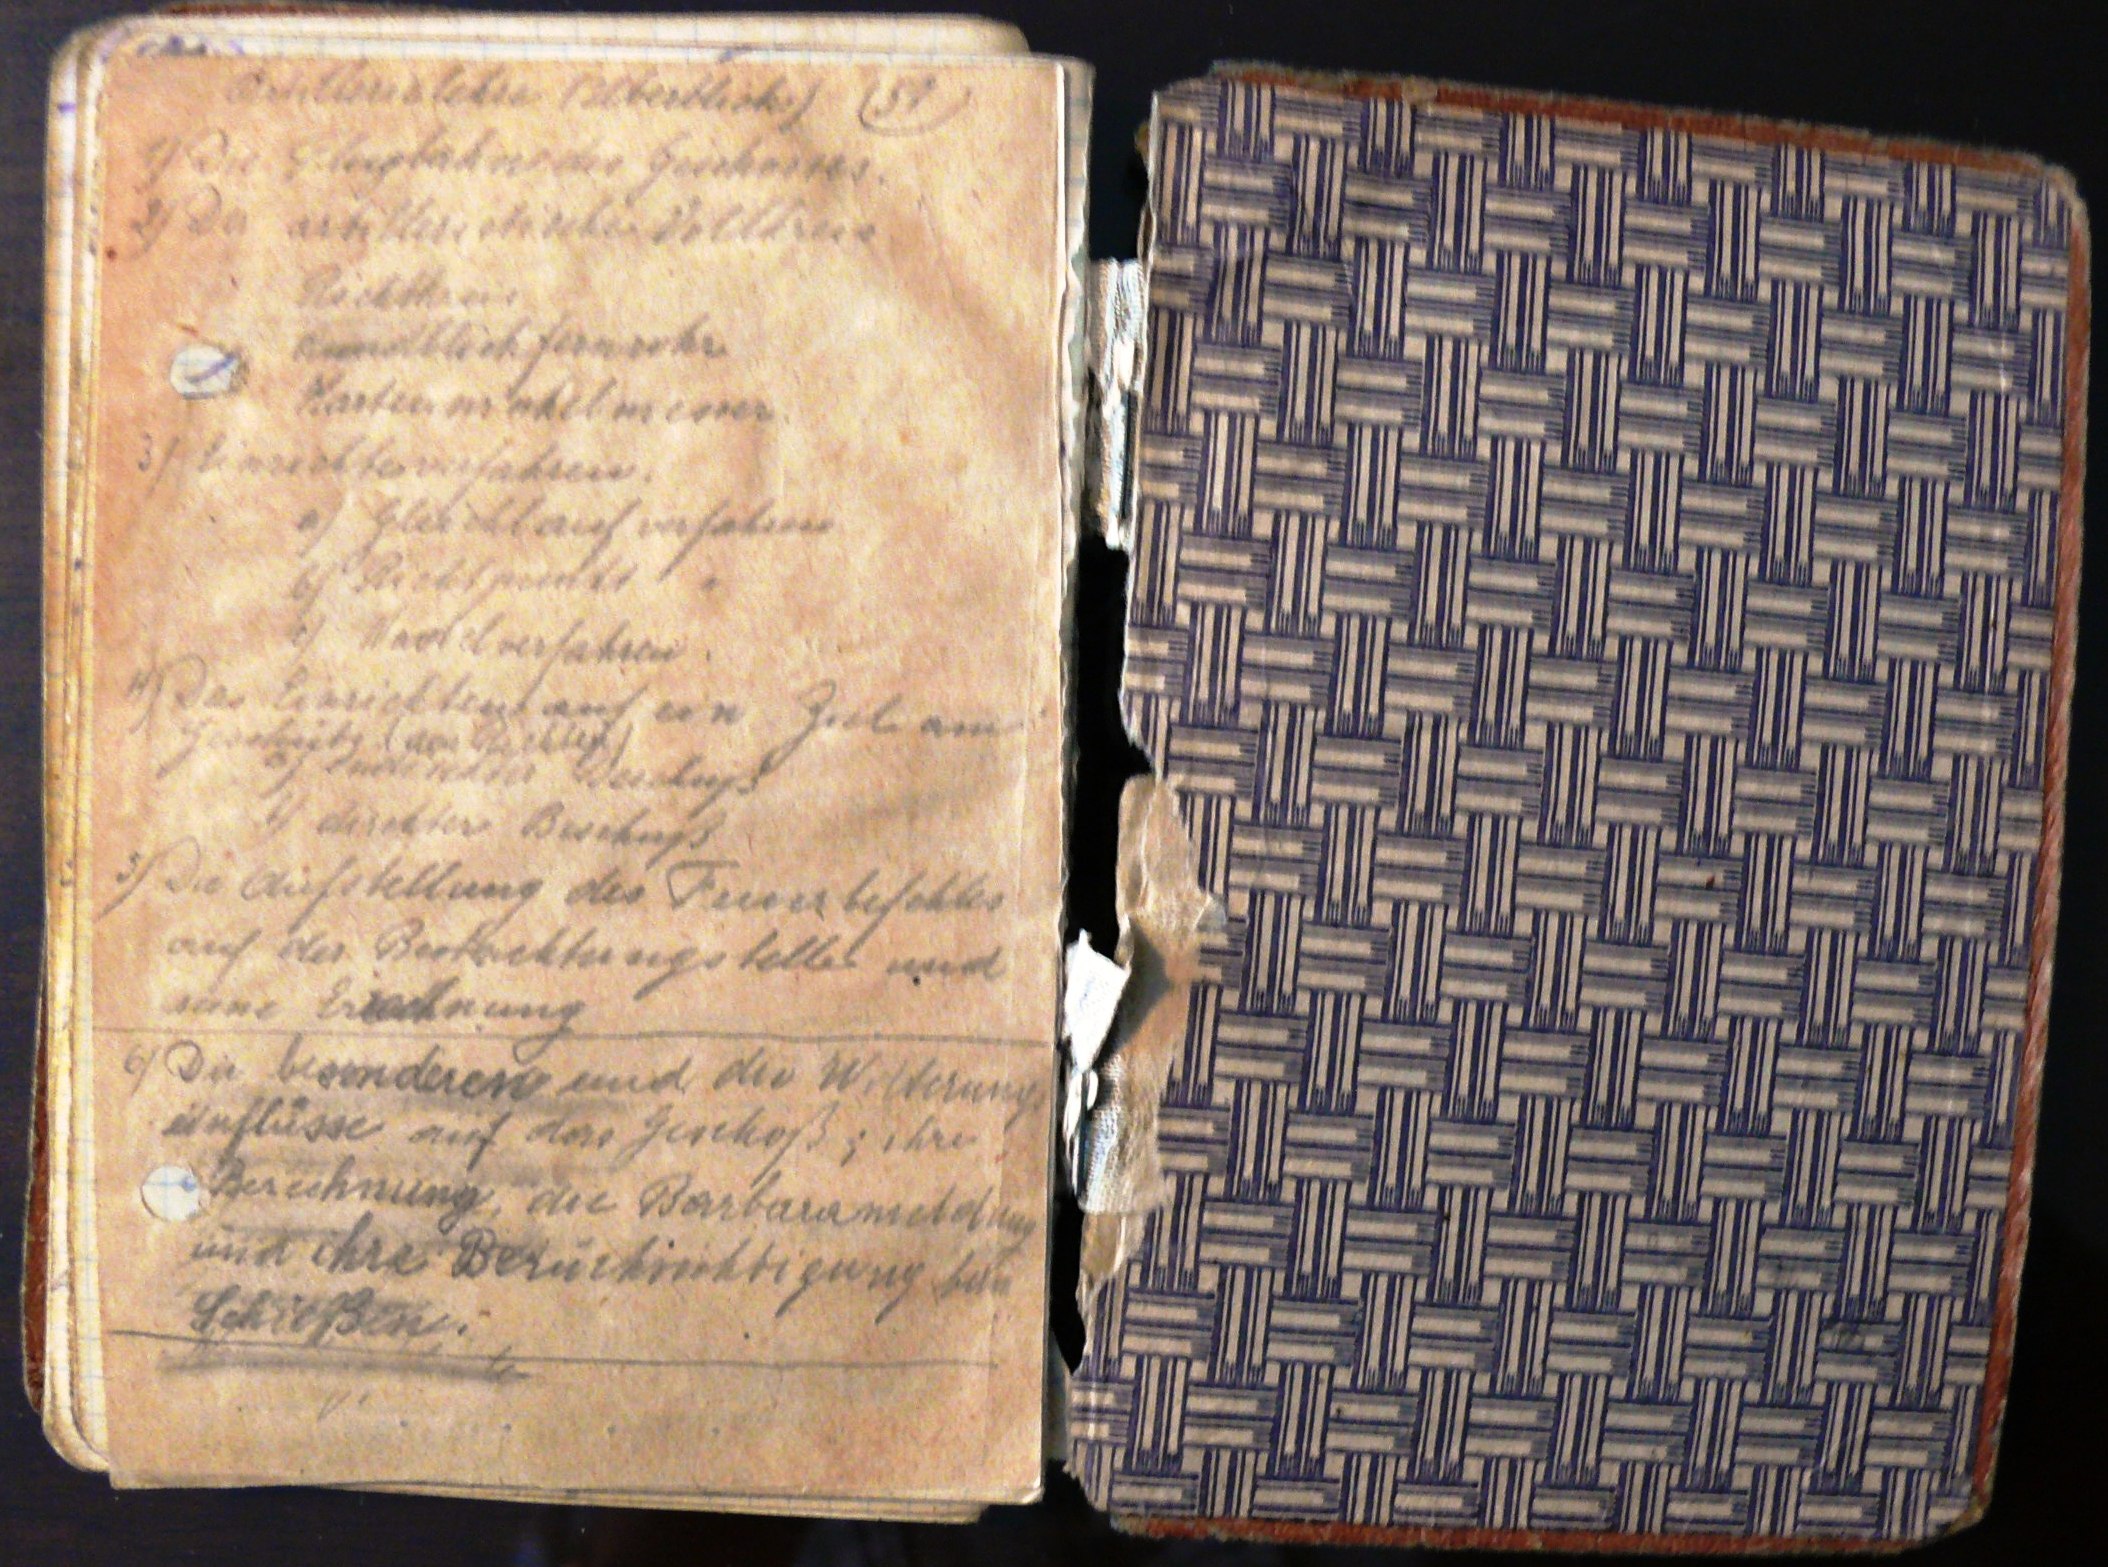 Artillerielehre (Überblick) (51)
1) Die Flugbahn des Geschosses.
2) Der artilleristische Vollkreis
Richtkreis
Rundblickfernrohr
Kartenwinkelmesser.
3) Einrichteverfahren.
a) Gleichlaufverfahren
b) Richtpunkt "
c) Nadelverfahren.
4) Das Einrichten auf ein Ziel am
Geschütz (von Richtkr)
a) indirekter Beschuß
b) direkter Beschuß
5) Die Aufstellung des Feuerbefehles
auf der Beobachtungstelle und
seine Errechnung
6) Die besonderen und die Witterungs
einflüsse auf das Geschoß; ihre
Berechnung, die Barbarameldung
und ihre Berücksichtigung beim
Schießen.